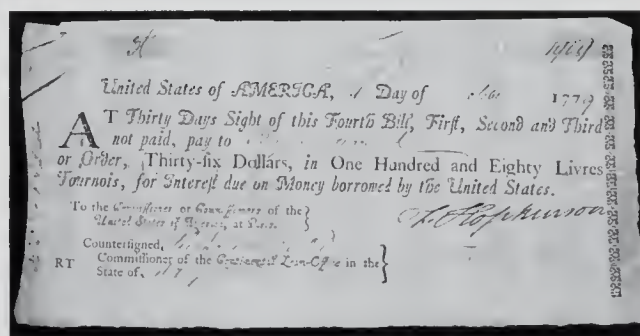 United States of AMERICA, Day of 1779
AT Thirty Days Sight of this Fourth Bill, First, Second and Third
not paid, pay to
or Order, Thirty-six Dollars, in One Hundred and Eighty Livres
Tournois, for Interest due on Money borrowed by the United States.
To the Commissioner or Commissioners of the
United States of America, at Paris.
F. Hopkinson
Countersigned,
RT Commissioner of the Continental Loan-Office in the
State of